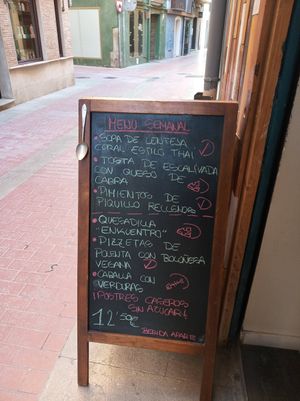 MENU SEMANAL
• SOPA DE LENTEJA
CORAL ESTILO THAI
• TOSTA DE ESCALIVADA
CON QUESO DE
CABRA
• PIMIENTOS DE
PIQUILLO RELLENOS
• QUESADILLA
"ENKUENTRO"
• PIZZETAS DE
POLENTA CON BOLOÑESA
VEGANA
• CABALLA CON
VERDURAS
¡POSTRES CASEROS
SIN AZUCAR!
12'50€
BEBIDA APARTE